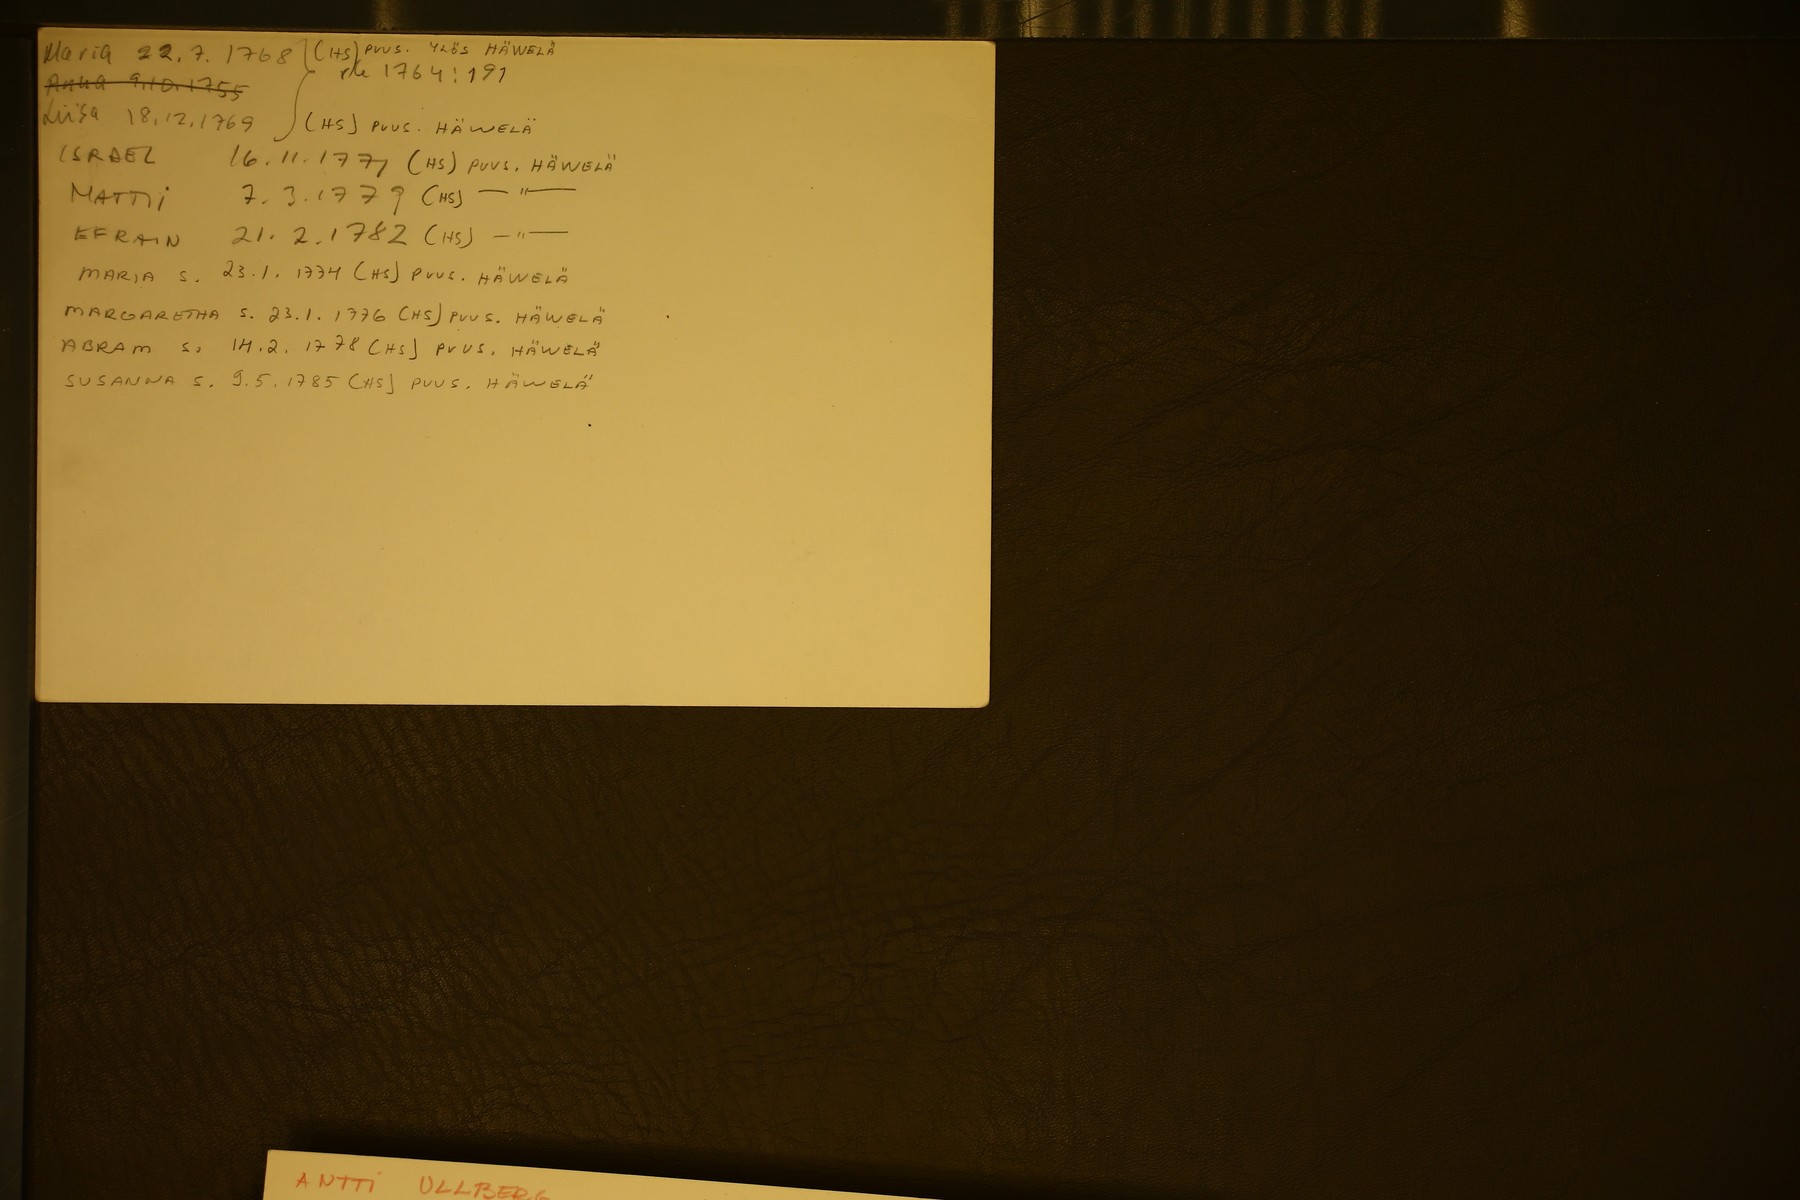 Maria 22.7.1768 (HS) PUUS. YLÖS HÄWELÄ
rk 1764:191
Anna 9.10.1755
Liisa 18.12.1769 (HS) PUUS. HÄWELÄ
ISRAEL 16.11.1771 (HS) PUUS. HÄWELÄ
MATTii 7.3.1779 (HS) — " —
EFRAIN 21.2.1782 (HS) — " —
MARIA S. 23.1.1774 (HS) PUUS. HÄWELÄ
MARGARETHA S. 23.1.1776 (HS) PUUS. HÄWELÄ
ABRAM S. 14.2.1778 (HS) PUUS. HÄWELÄ
SUSANNA S. 9.5.1785 (HS) PUUS. HÄWELÄ
ANTTi ULLBERG